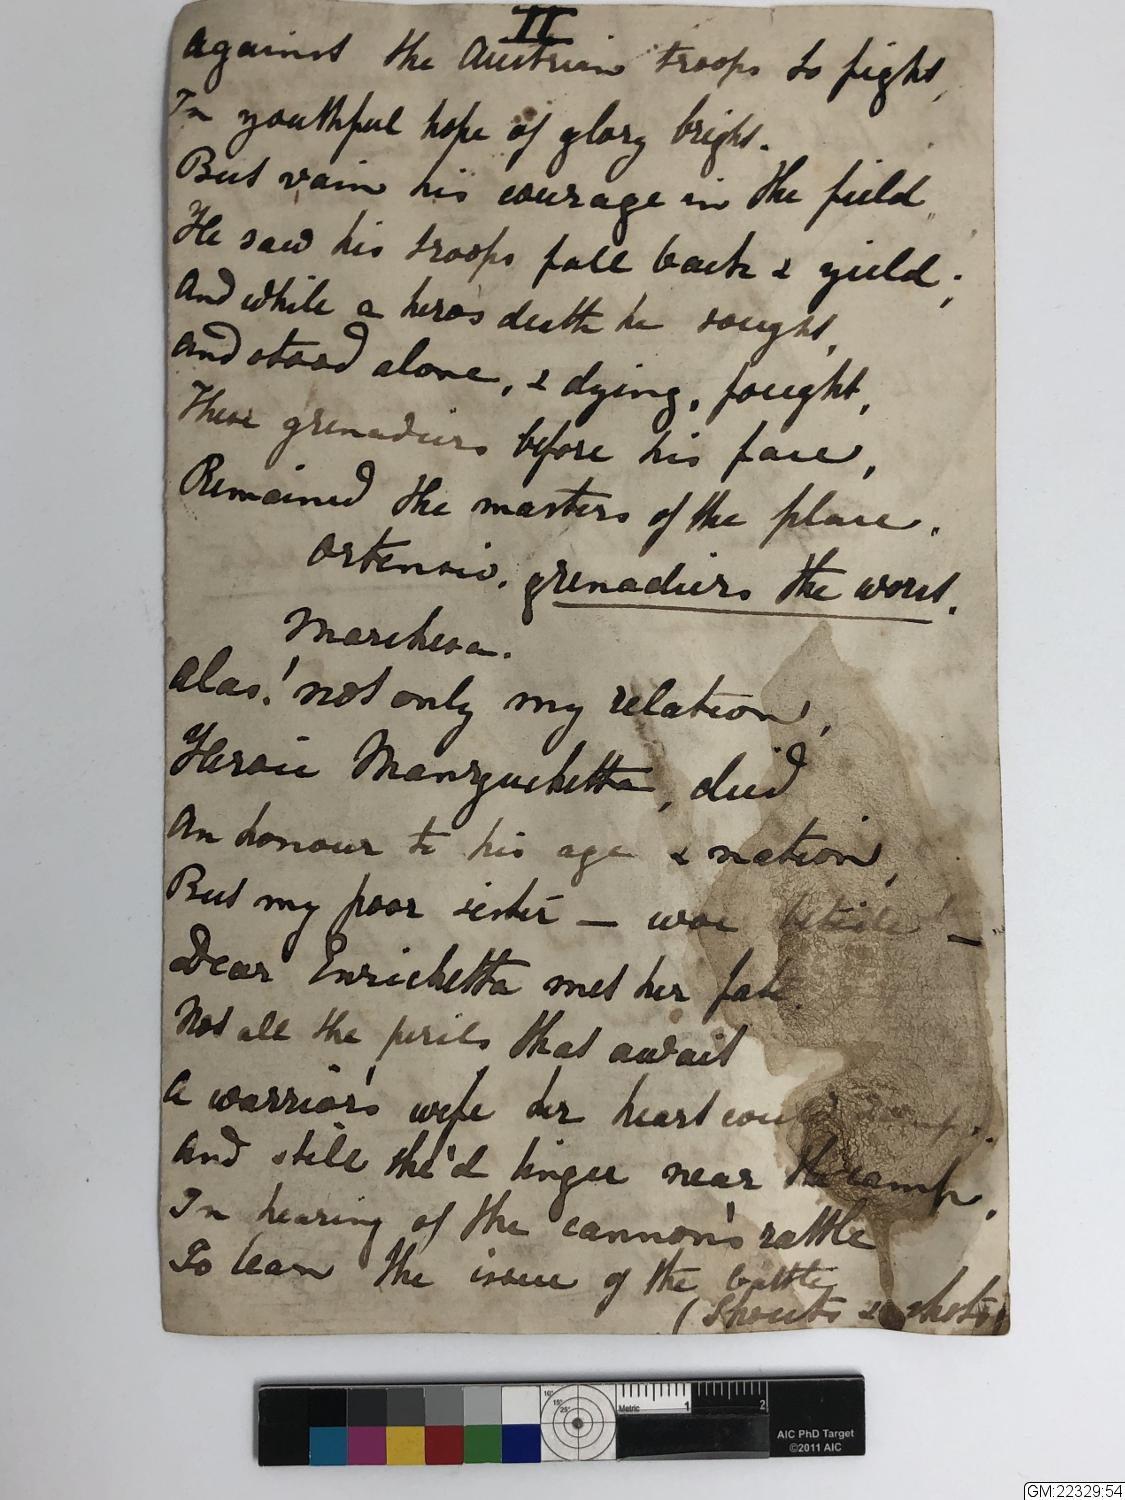 II
Against the Austrian troops to fight,
In youthful hope of glory bright.
But vain his courage in the field
He saw his troops fall back & yield;
And while a hero's death he sought,
And stood alone, & dying, fought,
These grenadiers before his face,
Remained the masters of the place.
Ortensio. grenadiers the worst.
Marchesa.
Alas! not only my relation,
Heroic Manzuchetta, died
An honour to his age & nation,
But my poor sister — woe betide! —
Dear Enrichetta met her fate.
Not all the perils that await
A warrior's wife her heart could damp.
And still she'd linger near the camp,
In hearing of the cannon's rattle
To learn the issue of the battle
(Shouts & shots)
AIC PhD Target
©2011 AIC
Metric 1 2
10°
15°
25°
GM:22329:54